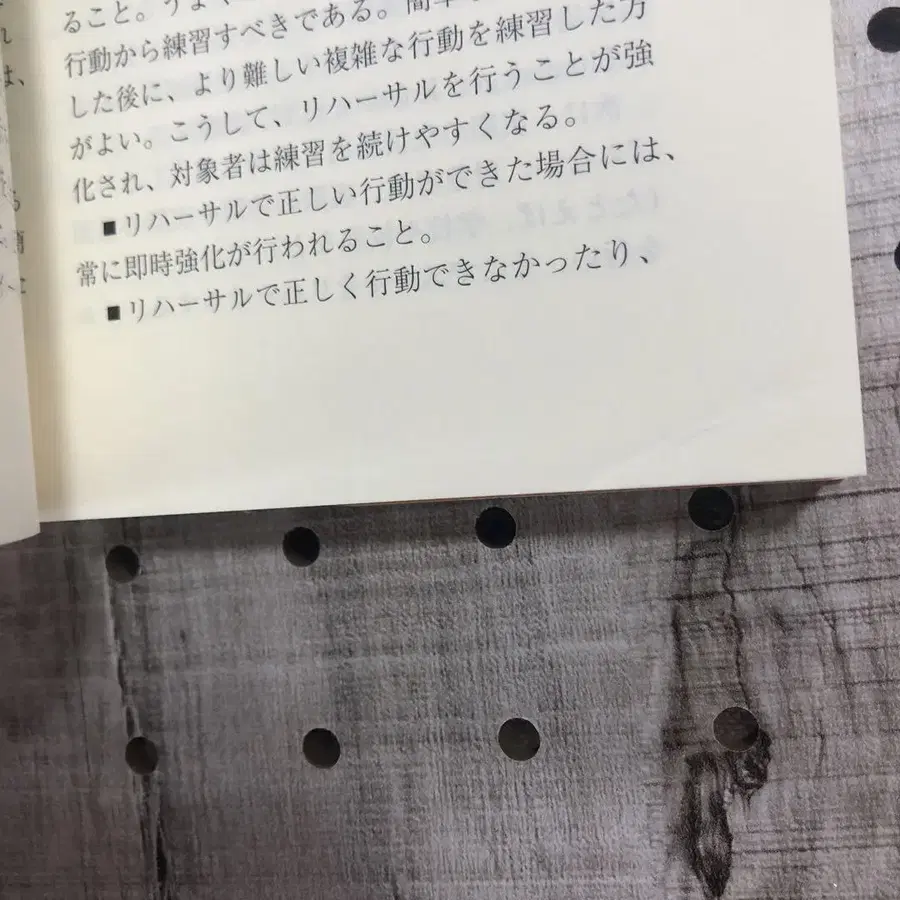 ること。うまく
行動から練習すべきである。簡単
した後に、より難しい複雑な行動を練習した方
がよい。こうして、リハーサルを行うことが強
化され、対象者は練習を続けやすくなる。
■リハーサルで正しい行動ができた場合には、
常に即時強化が行われること。
■リハーサルで正しく行動できなかったり、